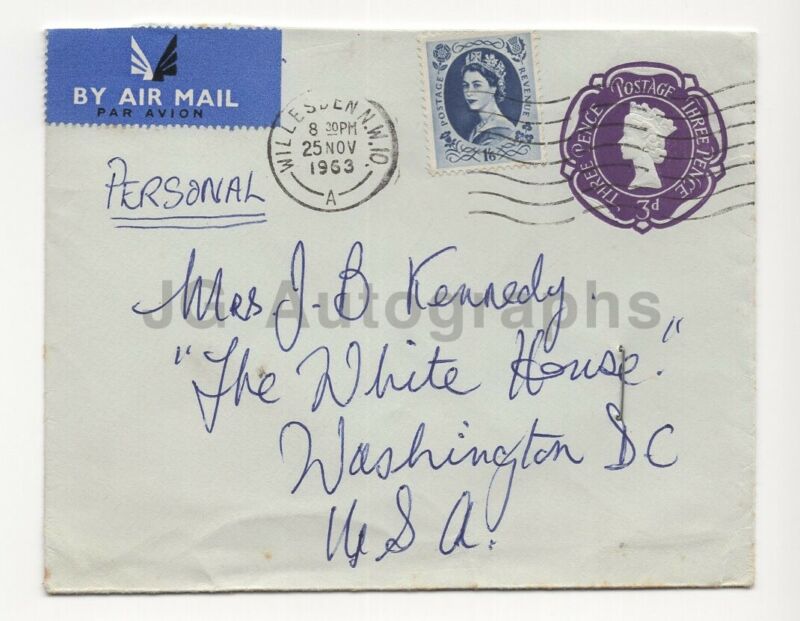 BY AIR MAIL
PAR AVION
WILLESDEN N.W.10.
8 30PM
25 NOV
1963
A
POSTAGE
REVENUE
1/6
POSTAGE
THREE PENCE
THREE PENCE
3d
PERSONAL
Mrs J. B Kennedy.
"The White House."
Washington DC
U S A.
JG Autographs